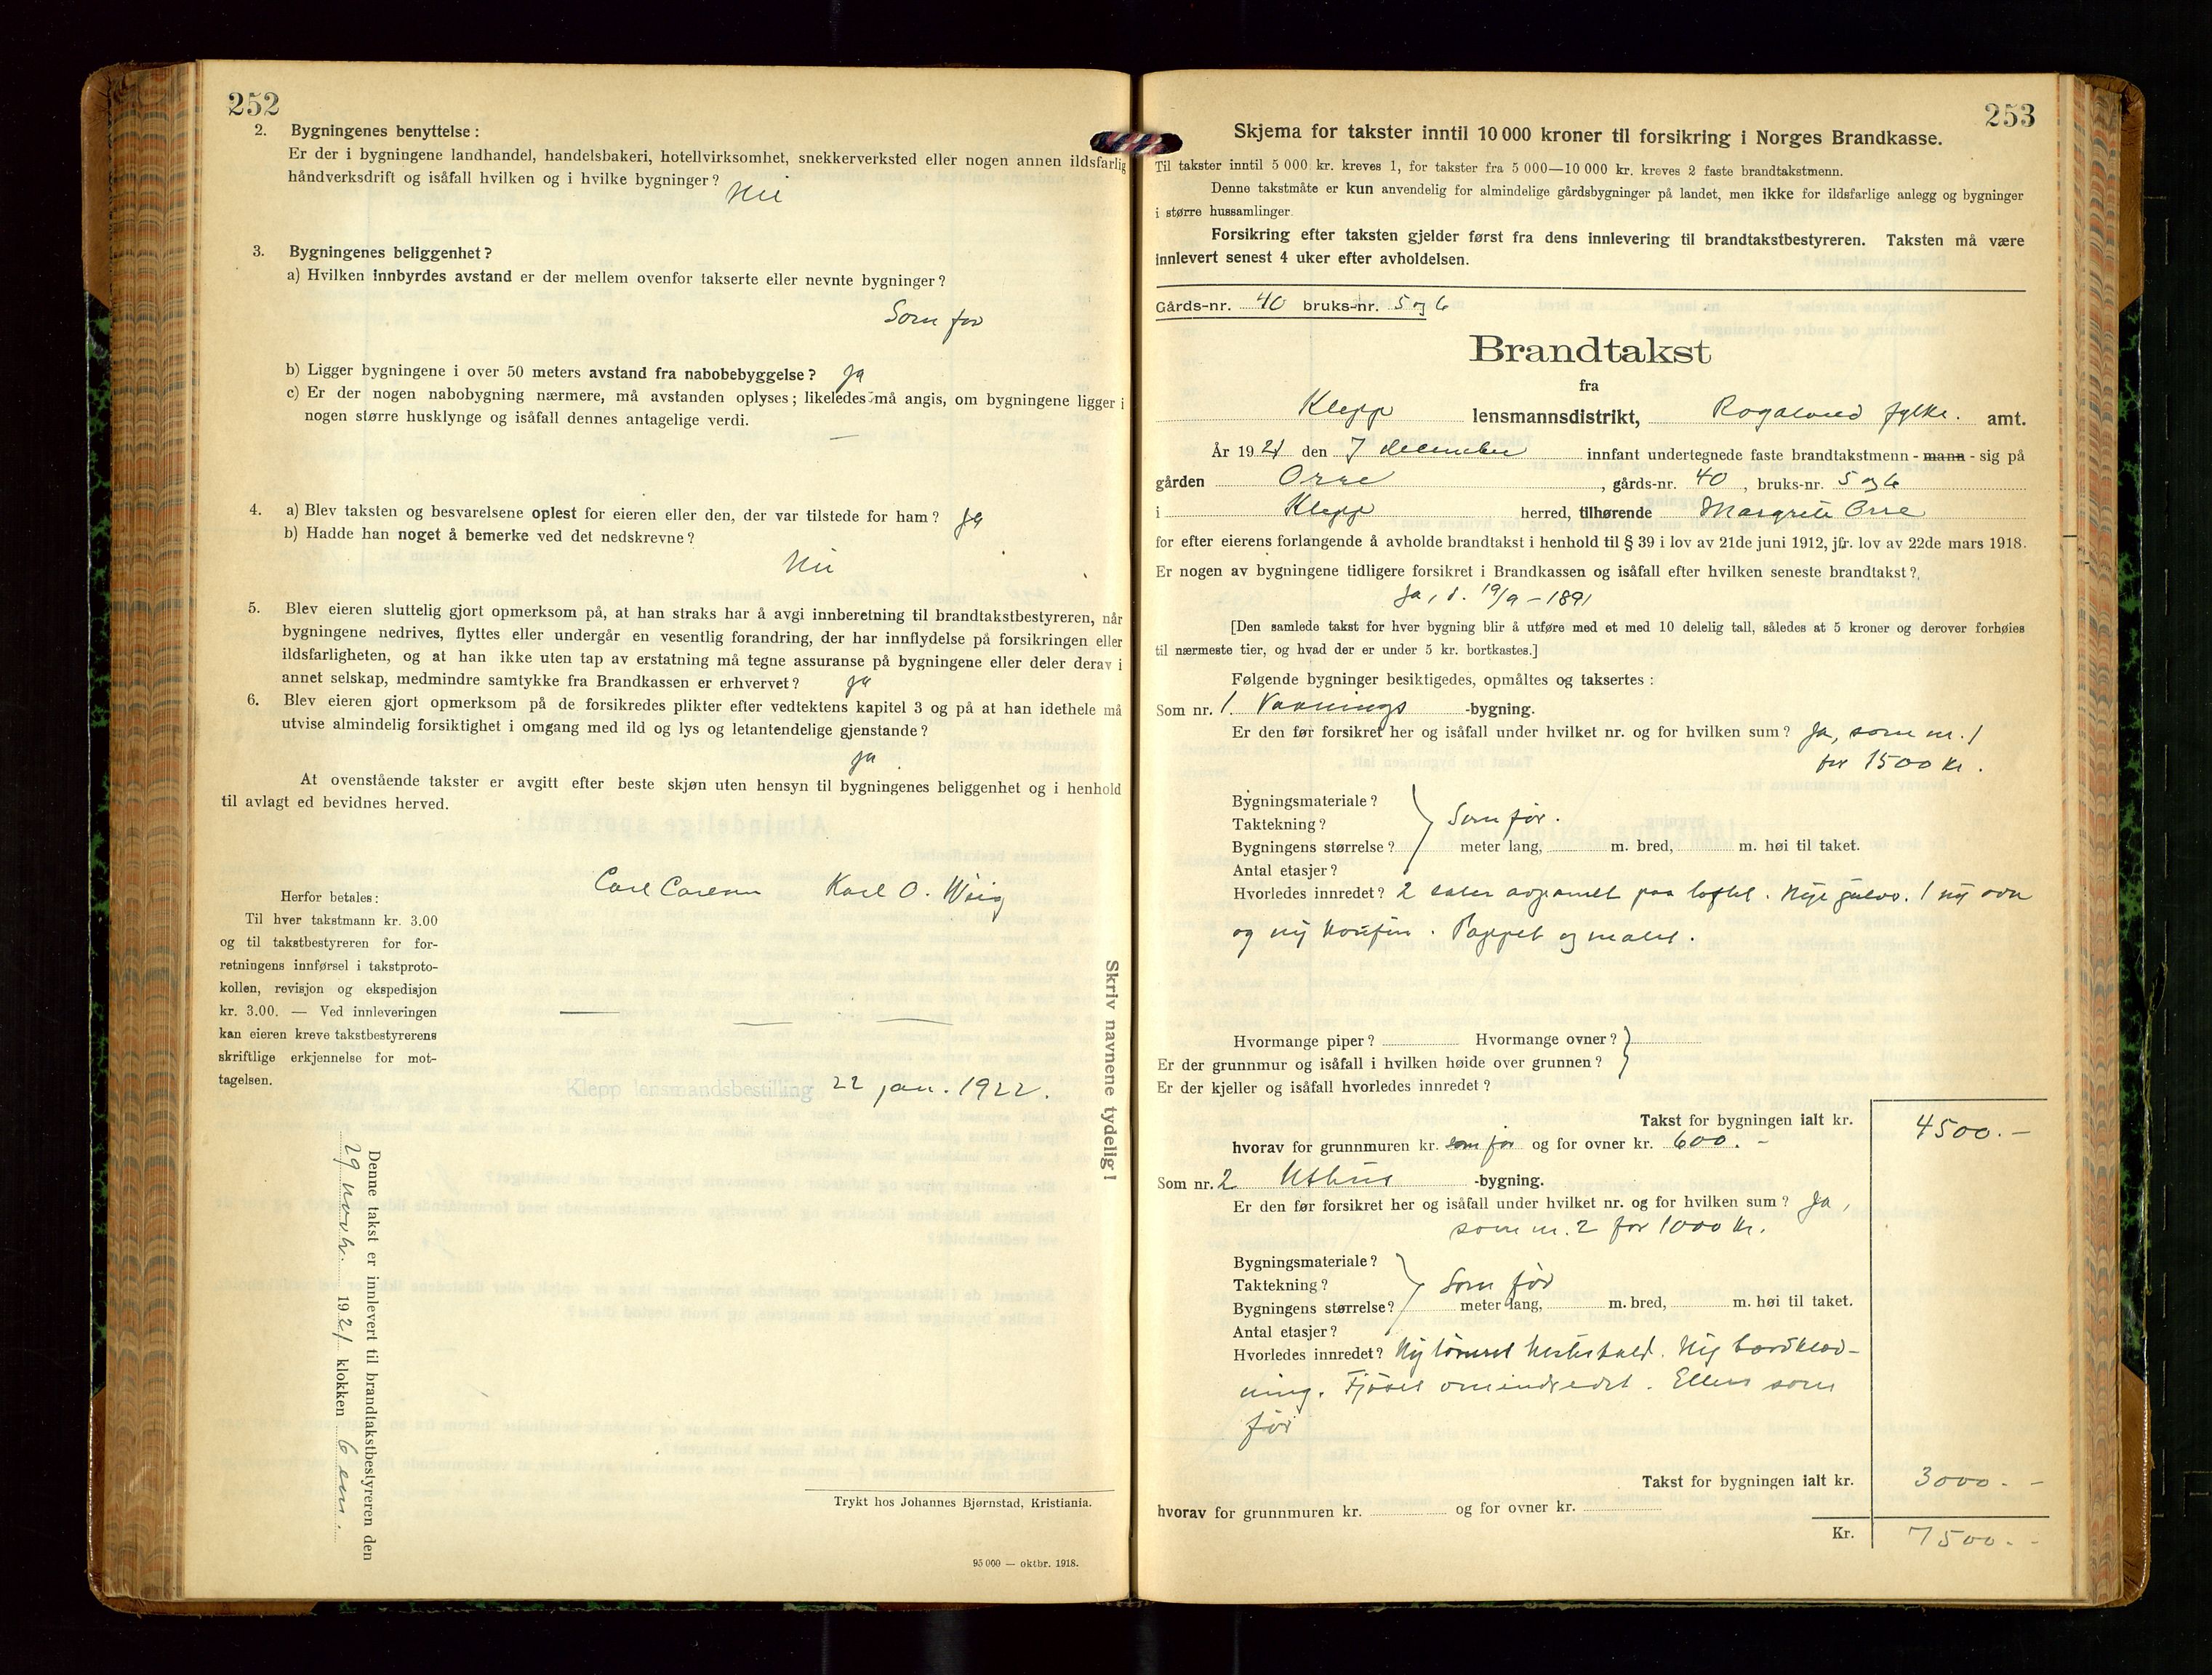 252
2. Bygningenes benyttelse:
Er der i bygningene landhandel, handelsbakeri, hotellvirksomhet, snekkerverksted eller nogen annen ildsfarlig
håndverksdrift og isåfall hvilken og i hvilke bygninger? Nei
3. Bygningenes beliggenhet?
a) Hvilken innbyrdes avstand er der mellem ovenfor takserte eller nevnte bygninger?
Som før
b) Ligger bygningene i over 50 meters avstand fra nabobebyggelse? Ja
c) Er der nogen nabobygning nærmere, må avstanden oplyses; likeledes må angis, om bygningene ligger i
nogen større husklynge og isåfall dennes antagelige verdi. —
4. a) Blev taksten og besvarelsene oplest for eieren eller den, der var tilstede for ham? Ja
b) Hadde han noget å bemerke ved det nedskrevne?
Nei
5. Blev eieren sluttelig gjort opmerksom på, at han straks har å avgi innberetning til brandtakstbestyreren, når
bygningene nedrives, flyttes eller undergår en vesentlig forandring, der har innflydelse på forsikringen eller
ildsfarligheten, og at han ikke uten tap av erstatning må tegne assuranse på bygningene eller deler derav i
annet selskap, medmindre samtykke fra Brandkassen er erhvervet? Ja
6. Blev eieren gjort opmerksom på de forsikredes plikter efter vedtektens kapitel 3 og på at han idethele må
utvise almindelig forsiktighet i omgang med ild og lys og letantendelige gjenstande?
Ja
At ovenstående takster er avgitt efter beste skjøn uten hensyn til bygningenes beliggenhet og i henhold
til avlagt ed bevidnes herved.
Carl Carlsen Karl O. Wiig
Herfor betales:
Til hver takstmann kr. 3.00
og til takstbestyreren for for-
retningens innførsel i takstproto-
kollen, revisjon og ekspedisjon
kr. 3.00. — Ved innleveringen
kan eieren kreve takstbestyrerens
skriftlige erkjennelse for mot-
tagelsen.
Klepp lensmandsbestilling 22 jan. 1922.
Skriv navnene tydelig!
Denne takst er innlevert til brandtakstbestyreren den
29 novbr. 1921 klokken 6 em.
Trykt hos Johannes Bjørnstad, Kristiania.
95 000 — oktbr. 1918.
253
Skjema for takster inntil 10 000 kroner til forsikring i Norges Brandkasse.
Til takster inntil 5 000 kr. kreves 1, for takster fra 5 000—10 000 kr. kreves 2 faste brandtakstmenn.
Denne takstmåte er kun anvendelig for almindelige gårdsbygninger på landet, men ikke for ildsfarlige anlegg og bygninger
i større hussamlinger.
Forsikring efter taksten gjelder først fra dens innlevering til brandtakstbestyreren. Taksten må være
innlevert senest 4 uker efter avholdelsen.
Gårds-nr. 40 bruks-nr. 5 og 6
Brandtakst
fra
Klepp lensmannsdistrikt, Rogaland fylke. amt.
År 1921 den 7 december innfant undertegnede faste brandtakstmenn - mann - sig på
gården Orre, gårds-nr. 40, bruks-nr. 5 og 6
i Klepp herred, tilhørende Margrete Orre
for efter eierens forlangende å avholde brandtakst i henhold til § 39 i lov av 21de juni 1912, jfr. lov av 22de mars 1918.
Er nogen av bygningene tidligere forsikret i Brandkassen og isåfall efter hvilken seneste brandtakst?
Ja, d. 19/9 - 1891
[Den samlede takst for hver bygning blir å utføre med et med 10 delelig tall, således at 5 kroner og derover forhøies
til nærmeste tier, og hvad der er under 5 kr. bortkastes.]
Følgende bygninger besiktigedes, opmåltes og taksertes:
Som nr. 1. Vaanings -bygning.
Er den før forsikret her og isåfall under hvilket nr. og for hvilken sum? Ja, som nr. 1
for 1500 kr.
Bygningsmateriale?
Taktekning? Som før.
Bygningens størrelse? meter lang, m. bred, m. høi til taket.
Antal etasjer?
Hvorledes innredet? 2 saler avpanelt paa loftet. Nye gulve. 1 ny ovn
og ny komfur. Pappet og malet.
Hvormange piper? Hvormange ovner?
Er der grunnmur og isåfall i hvilken høide over grunnen?
Er der kjeller og isåfall hvorledes innredet?
Takst for bygningen ialt kr. 4500.-
hvorav for grunnmuren kr. som før og for ovner kr. 600.-
Som nr. 2 Uthus -bygning.
Er den før forsikret her og isåfall under hvilket nr. og for hvilken sum? Ja,
som nr. 2 for 1000 kr.
Bygningsmateriale?
Taktekning? Som før
Bygningens størrelse? meter lang, m. bred, m. høi til taket.
Antal etasjer?
Hvorledes innredet? Ny hestestald. Ny bordklæd-
ning. Fjøset omindredet. Ellers som
før
Takst for bygningen ialt kr. 3000.-
hvorav for grunnmuren kr. og for ovner kr.
Kr. 7500.-